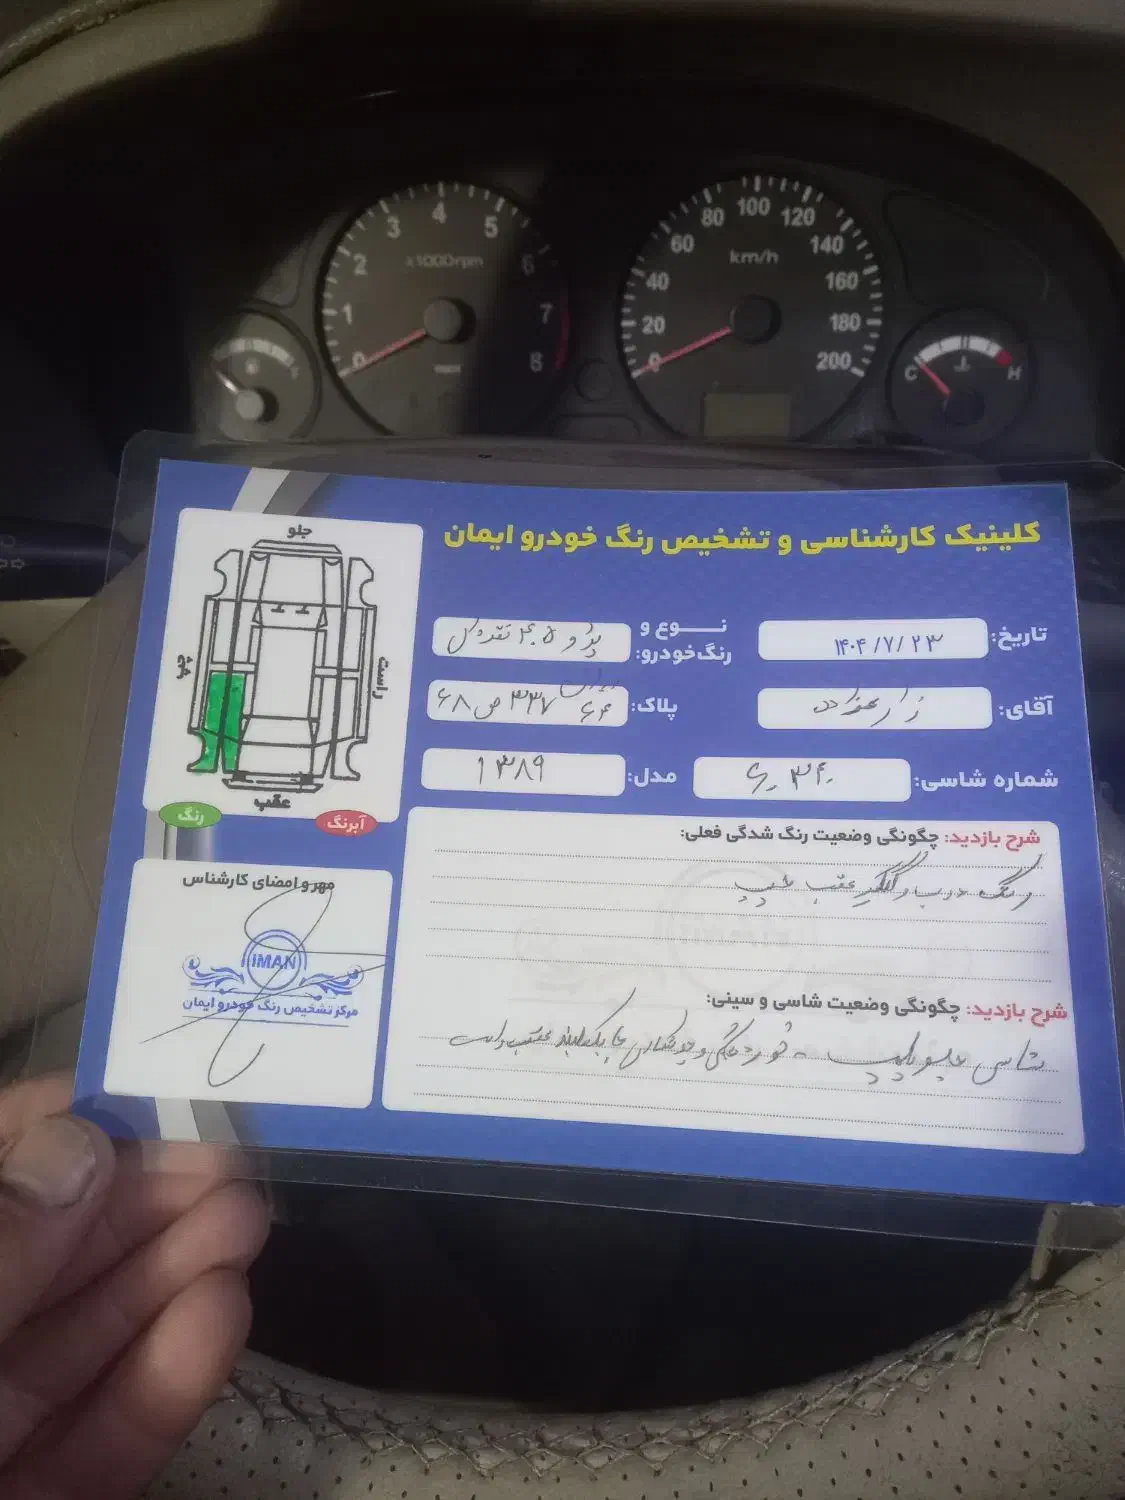 3 4 5
2 x1000rpm 6
1 7
0 8
80 100 120
60 km/h 140
40 160
20 180
0 200
C H
کلینیک کارشناسی و تشخیص رنگ خودرو ایمان
تاریخ: ۱۴۰۴/۷/۲۳
نوع و رنگ‌خودرو: پژو ۴۰۵
آقای:
پلاک: ۶۸ ص ۳۳۷
شماره شاسی:
مدل: ۱۳۸۹
جلو
چپ
راست
عقب
رنگ
آبرنگ
شرح بازدید: چگونگی وضعیت رنگ شدگی فعلی:
رنگ درب و گلگیر عقب چپ
شرح بازدید: چگونگی وضعیت شاسی و سینی:
شاسی جلو چپ خوردگی و جوشکاری
مهر و امضای کارشناس
IMAN
مرکز تشخیص رنگ خودرو ایمان